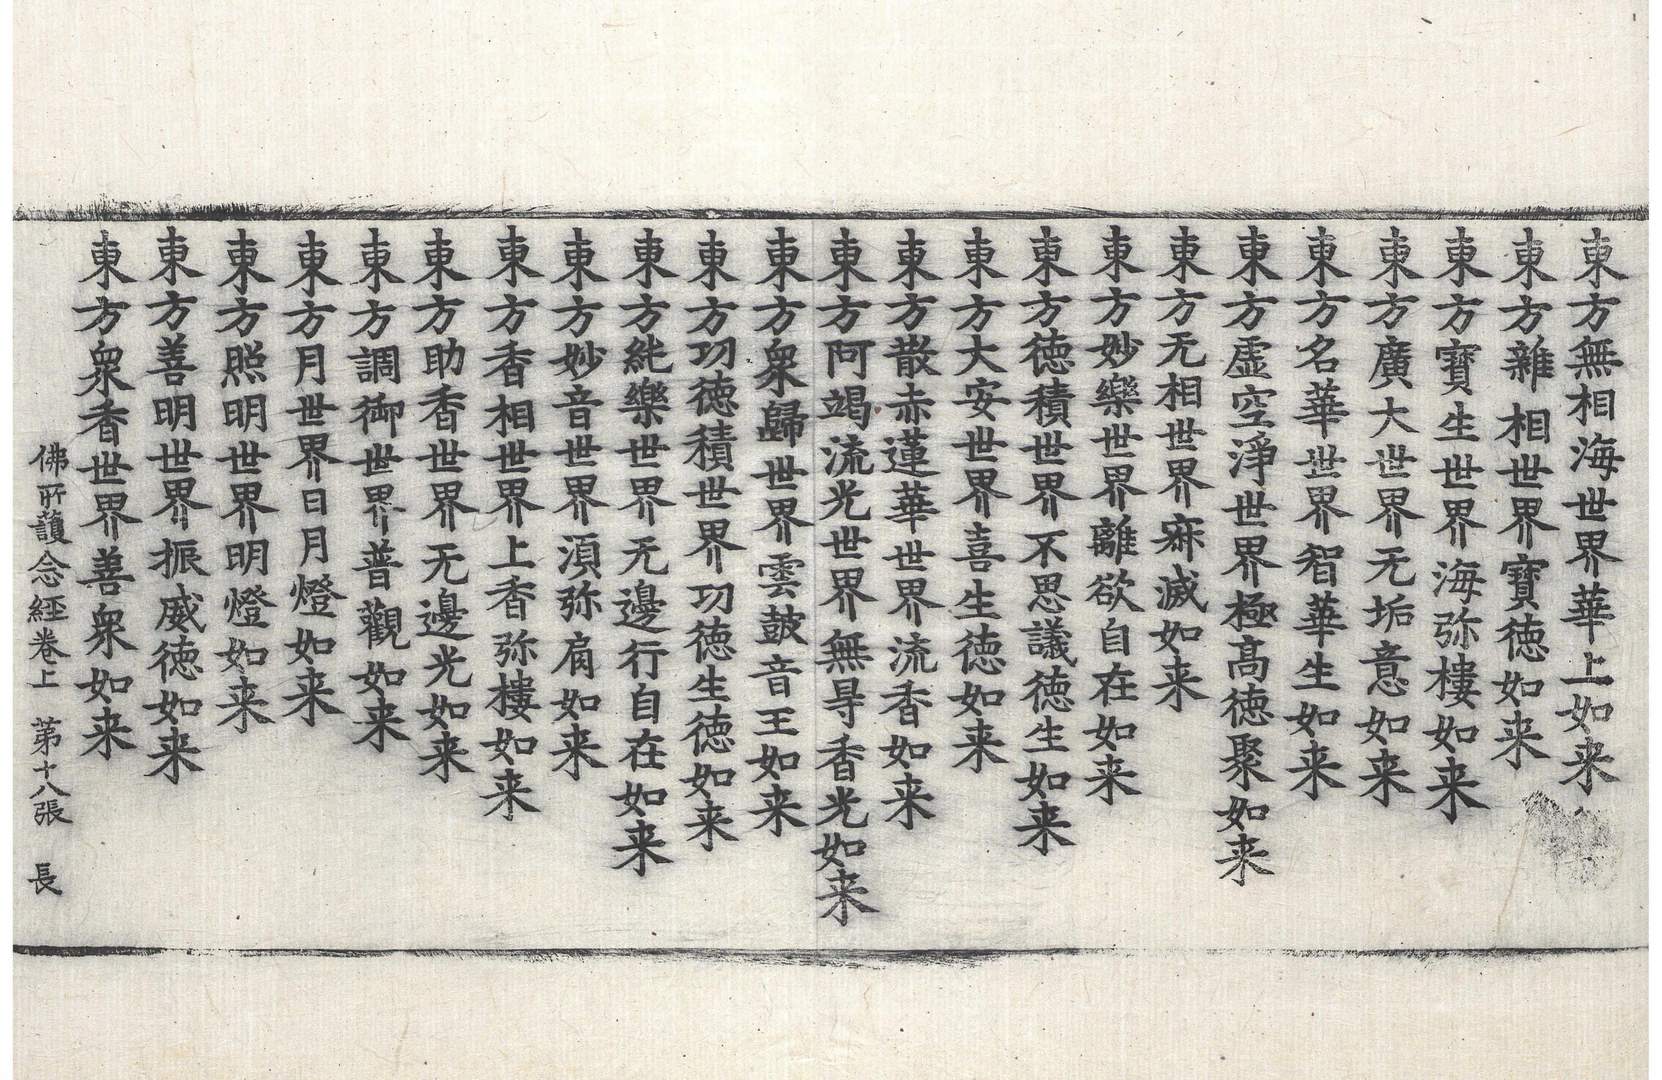 東方無相海世界華上如来
東方雜相世界寶徳如来
東方寶生世界海弥樓如来
東方廣大世界无垢意如来
東方名華世界智華生如来
東方虛空淨世界極髙徳聚如来
東方无相世界寂滅如来
東方妙樂世界離欲自在如来
東方徳積世界不思議徳生如来
東方大安世界喜生徳如来
東方散赤蓮華世界流香如来
東方阿竭流光世界無㝵香光如来
東方衆歸世界雲皷音王如来
東方功徳積世界功徳生徳如来
東方純樂世界无邊行自在如来
東方妙音世界湏弥肩如来
東方香相世界上香弥樓如来
東方助香世界无邊光如来
東方調御世界普觀如来
東方月世界日月燈如来
東方照明世界明燈如来
東方善明世界振威徳如来
東方衆香世界善衆如来
佛所護念經卷上 苐十八張 長